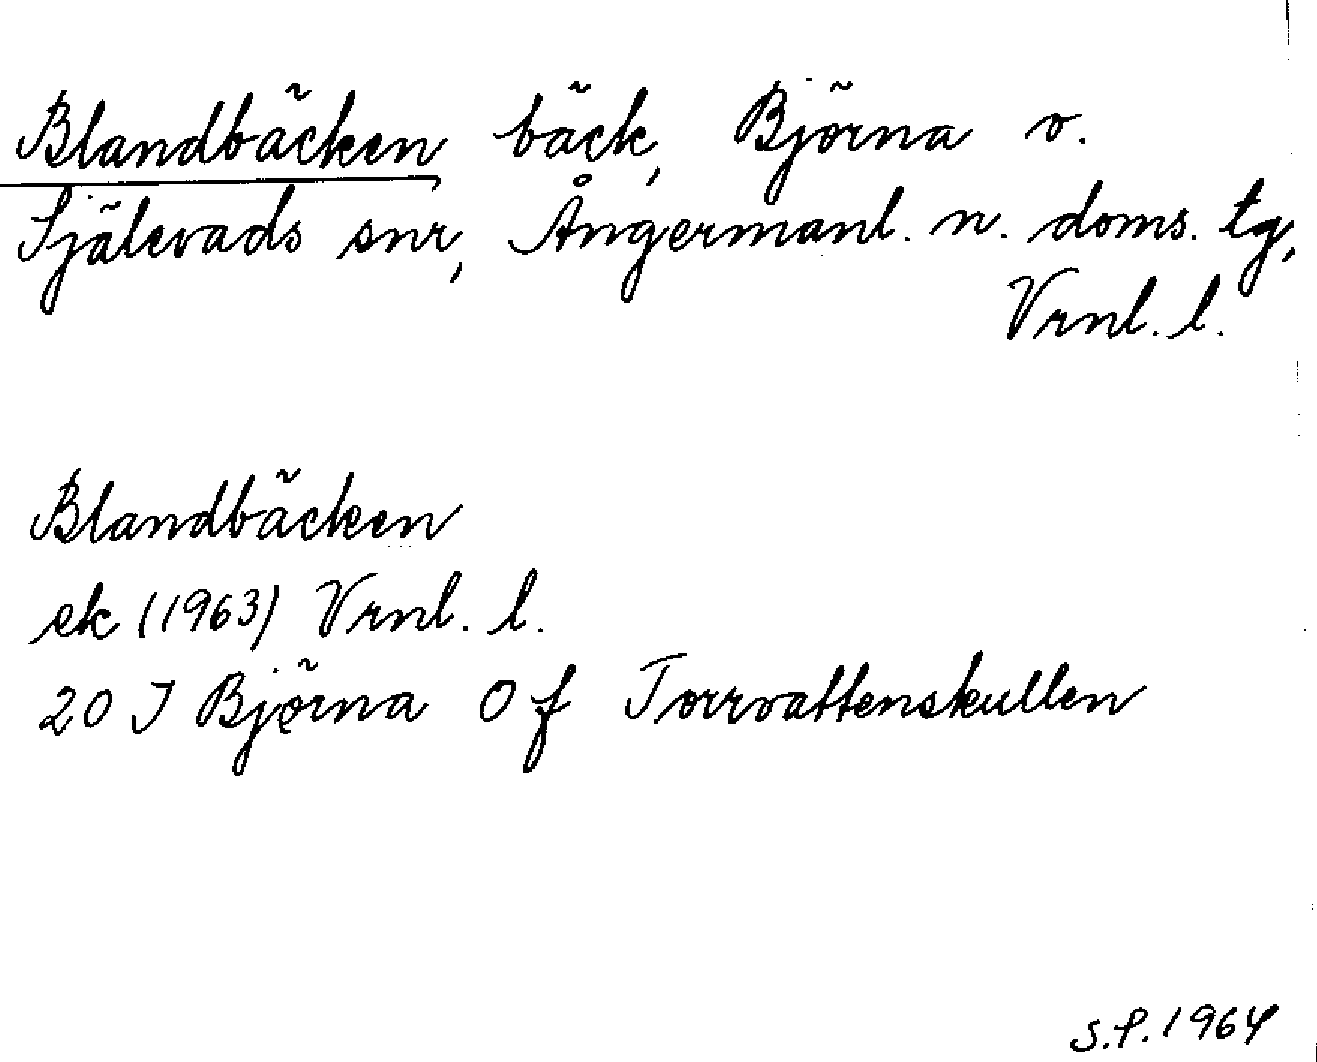 Blandbäcken, bäck, Björna o.
Självads snr, Ångermanl. n. doms. tg,
Vrnl. l.
Blandbäcken
ek (1963) Vrnl. l.
20 J Björna O f Torrvattenskullen
S.P. 1964